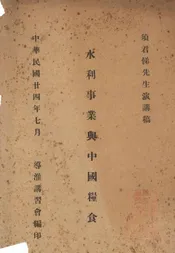 須君悌先生演講稿
水利事業與中國糧食
中華民國廿四年七月 導淮講習會編印